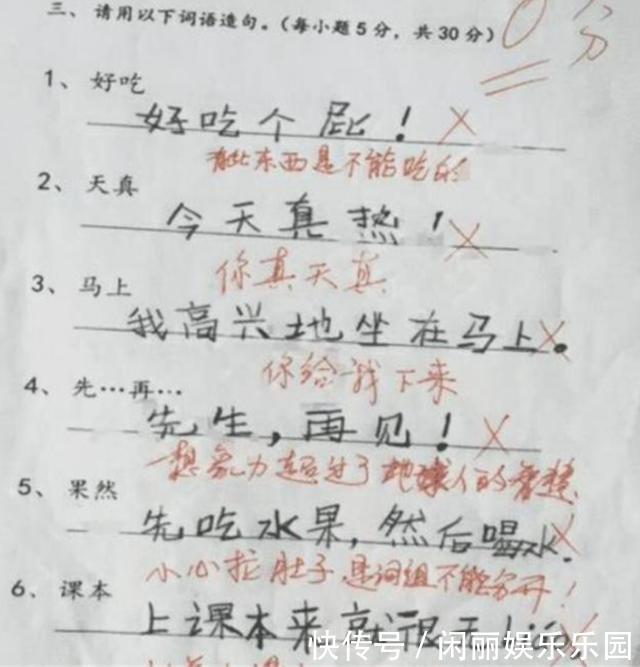 三、请用以下词语造句。(每小题5分，共30分) 0分
1、好吃
好吃个屁！
有些东西是不能吃的
2、天真
今天真热！
你真天真
3、马上
我高兴地坐在马上。
你给我下来
4、先…再…
先生，再见！
想象力超过了地球人的智慧
5、果然
先吃水果，然后喝水。
小心拉肚子，是词组不能分开！
6、课本
上课本来就很
快传号／闲丽娱乐乐园